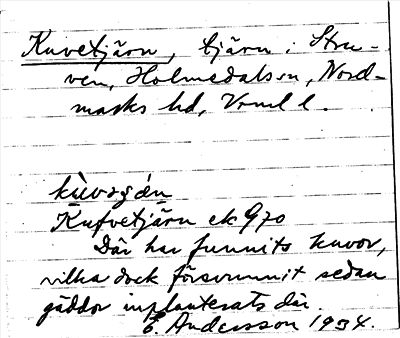 Kuvetjärn, tjärn i Stru-
ven, Holmedals sn, Nord-
marks hd, Vrml l.
kùvɘʂǽn
Kufvetjärn ek G70
Där har funnits kuvor,
vilka dock försvunnit sedan
gäddor inplanterats där.
E. Andersson 1934.